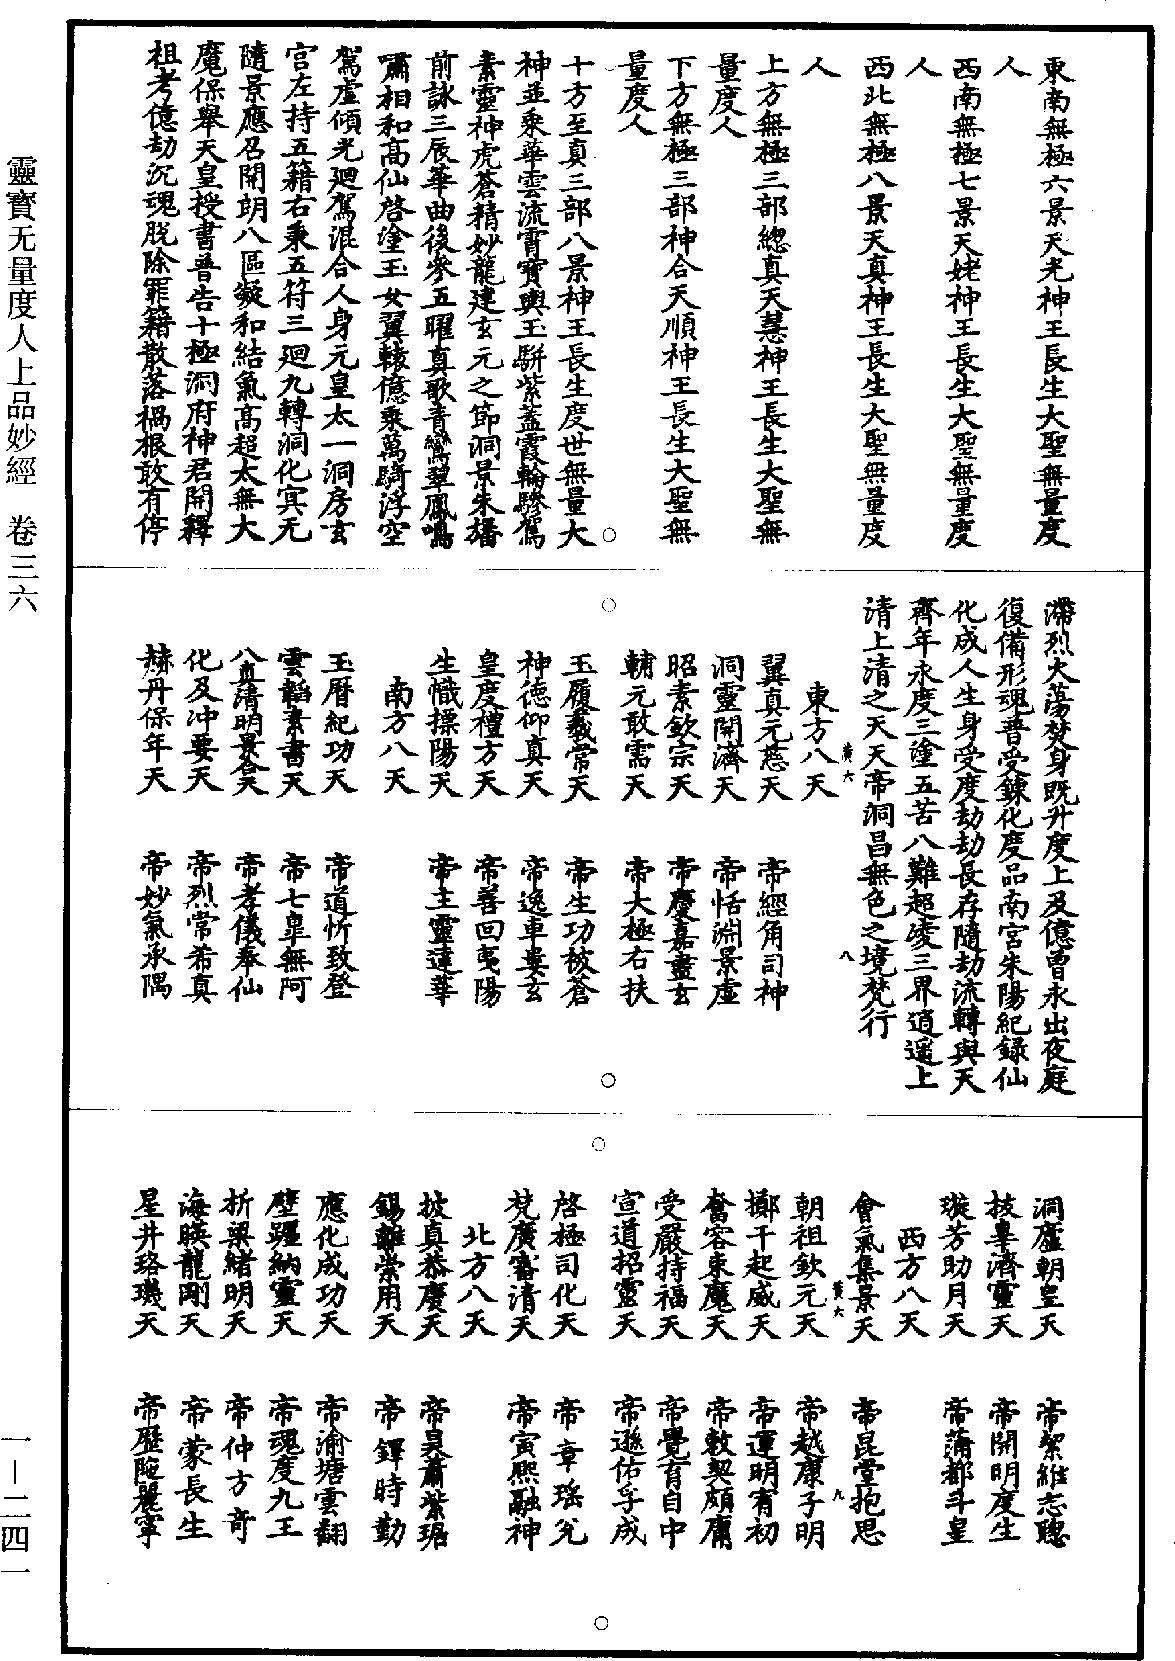 東南無極六景天光神王長生大聖無量度
人
西南無極七景天姥神王長生大聖無量度
人
西北無極八景天真神王長生大聖無量度
人
上方無極三部總真天慧神王長生大聖無
量度人
下方無極三部神合天順神王長生大聖無
量度人
十方至真三部八景神王長生度世無量大
神並乘華雲流霄寶輿玉駢紫蓋霞輪驂駕
素靈神虎蒼精妙龍建玄元之節洞景朱旛
前詠三辰華曲後參五曜真歌青鸞翠鳳鳴
嘯相和高仙啓塗玉女翼轅億乘萬騎浮空
駕虛傾光廻駕混合人身元皇太一洞房玄
宮左持五籍右秉五符三廻九轉洞化冥无
隨景應召開朗八區凝和結氣高超太無大
魔保舉天皇授書普告十極洞府神君開釋
祖考億劫沉魂脫除罪籍散落禍根敢有停
滯烈火蕩焚身既升度上及億曾永出夜庭
復備形魂普受鍊化度品南宮朱陽紀錄仙
化成人生身受度劫劫長存隨劫流轉與天
齊年永度三塗五苦八難超凌三界逍遥上
清上清之天天帝洞昌無色之境梵行
黃六
八
東方八天
翼真元慈天 帝經角司神
洞靈開濟天 帝恬淵景虛
昭素欽宗天 帝慶嘉畫玄
輔元敢需天 帝大極右扶
玉履義常天 帝生功被蒼
神德仰真天 帝逸車婁玄
皇度禮方天 帝善回夷陽
生幟摽陽天 帝主靈達華
南方八天
玉曆紀功天 帝道忻致登
雲韜素書天 帝七臯無阿
八真清明景合天 帝孝儀奉仙
化及冲要天 帝烈常希真
赫丹保年天 帝妙氣承隅
洞廬朝皇天 帝絜維志聰
技臯濟靈天 帝開明度生
璇芳助月天 帝蒲都斗皇
西方八天
會氣集景天 帝昆堂抱思
黃六
九
朝祖欽元天 帝越康子明
擲干起威天 帝運明宥初
奮容束魔天 帝敕契頗庸
受嚴持福天 帝覺有自中
宣道招靈天 帝遜佑孚成
啓極司化天 帝章瑤允
梵廣審清天 帝寅熙融神
北方八天
披真恭慶天 帝昊蕭紫琚
錫難崇用天 帝鐸時勤
應化成功天 帝渝塘雲翻
壁躔納靈天 帝魂度九王
析梁緒明天 帝仲方奇
海暎龍剛天 帝蒙長生
星井珞璣天 帝歷陁麗寧
靈寶无量度人上品妙經 卷三六
一—二四一